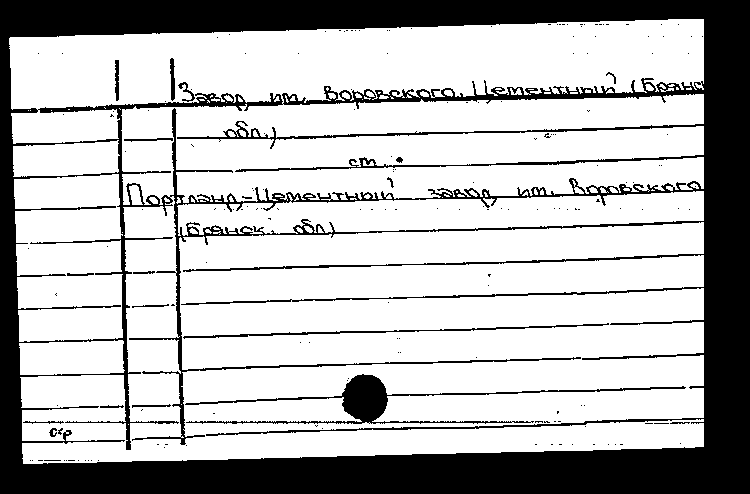 Завод им. Воровского. Цементный (Брянск
обл.)
ст.
Портланд-Цементный завод им. Воровского
(Брянск. обл)